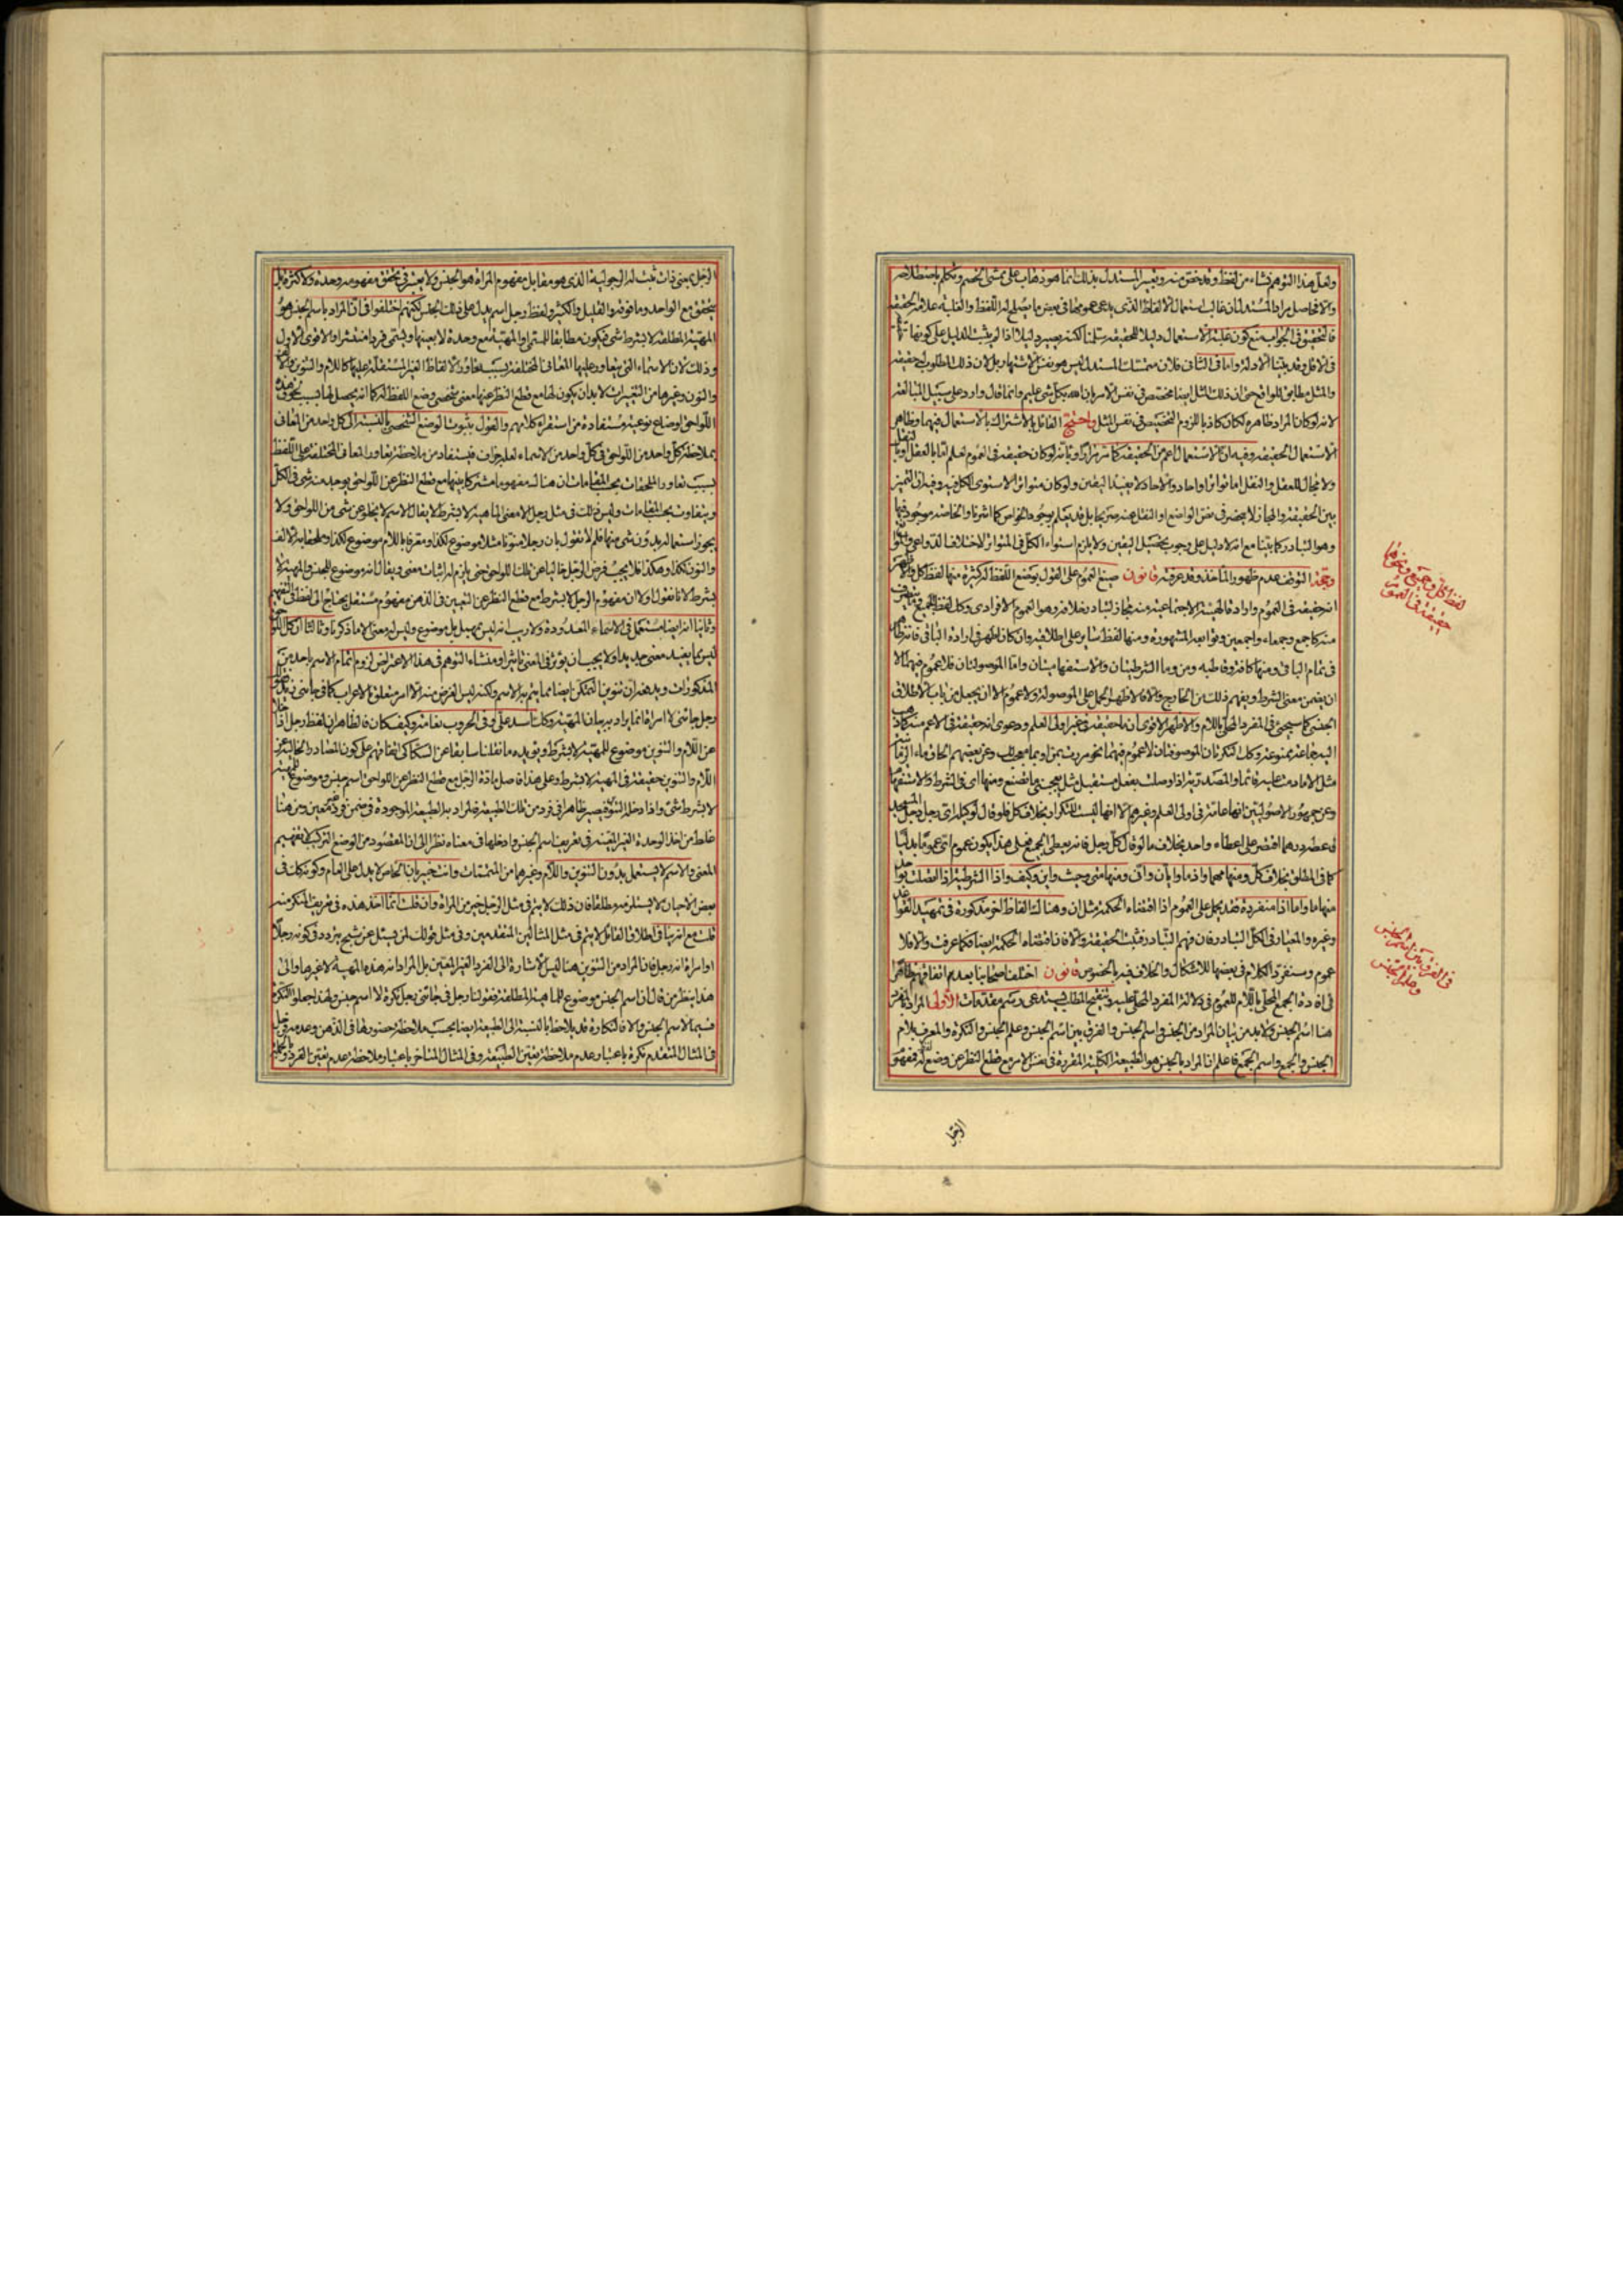 ولعل هذا التوهم نشاء من لفظ وقد يخص منه وتعبير المستدل بذلك انما هو ذهاب على ممشى الخصم وتكلم باصطلاحه
والا فحاصل مراد المستدل ان غالب استعمال الالفاظ الذى يدعى عمومها فى بعض ما يصلح له اللفظ والغلبة علامة الحقيقة
فالتحقيق فى الجواب منع كون غلبة الاستعمال دليلا للحقيقة سلمنا لكنه يصير دليلا اذا لم يثبت الدليل على كونها
فى الاقل وقد بينا الادلة واما فى الثانى فلان متمسك المستدل ليس هو نفس الاشتهار بل لان ذلك المطلوب لحقيقة
والمثل مطابق للواقع حتى ان ذلك المثل ايضا مختص فى نفس الامر بان الله بكل شى عليم وانما قال وارد على سبيل المبالغة
لانه لو كان المراد ظاهره لكان كاذبا للزوم التخصيص فى نفس المثل واحتج القائل بالاشتراك بالاستعمال فيهما وظاهر
الاستعمال الحقيقة وفيه ان الاستعمال اعم من الحقيقة كما مر مرارا وبانه لو كان حقيقة فى العموم لعلم اما بالعقل او بالنقل
ولا مجال للعقل والنقل اما تواترا واحاد والاحاد لا يفيد اليقين ولو كان متواترا لاستوى الكل فيه وفيه ان التميز
بين الحقيقة والمجاز لا ينحصر فى نص الواضع او النقل عنه صريحا بل قد يعلم بوجود الخواص كما اشرنا والخاصة موجود فيها
وهو التبادر كما بينا مع انه لا دليل على وجوب تحصيل اليقين ولا يلزم استواء الكل فى المتواتر لاختلاف الدواعى
وحجة التوقف عدم ظهور المأخذ وقد عرفته قانون صيغ العموم على القول بوضع اللفظ له كثيرة منها لفظ كل
انه حقيقة فى العموم وارادة الهيئة الاجتماعية منه مجاز لتبادر خلافه وهو العموم الافرادى وكل لفظ الجميع
منه كاجمع وجمعاء واجمعين وتوابعه المشهورة ومنها لفظ ساير على اطلاقه وان كان اظهر فى ارادة الباقى فانه ظاهر
فى تمام الباقى ومنها كافة وقاطبة ومن وما الشرطيتان والاستفهاميتان واما الموصولتان فلا عموم فيهما الا
ان يضمن معنى الشرط ويفهم ذلك من الخارج والا فالاظهر الحمل على الموصولة ولا عموم الا ان يجعل من باب الاطلاق
الجنس كما سيجئ فى المفرد المحلى باللام والاظهر الاقوى ان ما حقيقة فى غير اولى العلم ودعوى انه حقيقة فى الاعم
مثل الا ما دمت عليه قائما
وعن جمهور الاصوليين انها عامة فى اولى العلم وغيرهم الا انها ليست للتكرار بخلاف كل فلو قال لوكيله اى رجل دخل المسجد
فاعطه درهما اقتصر على اعطاء واحد بخلاف ما لو قال كل رجل فانه يعطى الجميع فعلى هذا يكون عموم اى عموما بدليا
كما فى المطلق بخلاف كل ومنها مهما واذما وايان وانى ومنها متى وحيث واين وكيف واذا الشرطية اذا اتصلت بواحد
منها ما واما اذا منفردة فقد يحمل على العموم اذا اقتضاه الحكمة مثل ان وهنالك الفاظ اخر مذكورة فى تمهيد القواعد
وغيره والمعيار فى الكل التبادر فان فهم التبادر فيثبت الحقيقة والا فان اقتضاه الحكمة ايضا فكما عرفت والا فلا
عموم وسنفرد الكلام فى بعضها للاشكال والخلاف فيه بالخصوص قانون اختلف اصحابنا بعد اتفاقهم ظاهرا
فى افادة الجمع المحلى باللام للعموم فى دلالة المفرد المحلى عليه وتنقيح المطلب يستدعى رسم مقدمات الاولى المراد بالمفرد
هنا اسم الجنس ولا بد من بيان المراد من الجنس واسم الجنس والفرق بين اسم الجنس وعلم الجنس والنكرة والمعرف بلام
الجنس والجمع واسم الجمع فاعلم ان المراد بالجنس هو الطبيعة الكلية المقررة فى نفس الامر مع قطع النظر عن وضع لفظ له فمفهوم
لفظ كل وجميع ونحوهما
حقيقة فى العموم
فى الفرق بين اسم الجنس
وعلم الجنس
الرجل
الرجل بمعنى ذات ثبت له الرجولية الذى هو مقابل مفهوم المراة هو الجنس ولا يعتبر فى تحقق مفهومه وحدة ولا كثرة بل
يتحقق مع الواحد وما فوقه والقليل والكثير ولفظ رجل اسم يدل على ذلك الجنس لكنهم اختلفوا فى ان المراد باسم الجنس هو
المهية المطلقة لا بشرط شى فيكون مطابقا للمسمى او المهية مع وحدة لا بعينها ويسمى فردا منتشرا والاقوى الاول
وذلك لان الاسماء التى يتعاور عليها المعانى المختلفة بسبب تعاور الالفاظ الغير المستقلة عليها كاللام والتنوين
والنون وغيرها من التغييرات لا بد ان يكون لها مع قطع النظر عنها معنى شخصى وضع اللفظ له كما انه يحصل لها بسبب لحوق هذه
اللواحق اوضاع نوعية مستفادة من استقراء كلامهم والقول بثبوت الوضع الشخصى بالنسبة الى كل واحد من المعانى
بملاحظة كل واحد من اللواحق فى كل واحد من الاسماء لعله جزاف فيستفاد من ملاحظة تعاور المعانى المختلفة على اللفظ
بسبب تعاور الملحقات بحسب المقامات ان هنالك مفهوما مشتركا بينها مع قطع النظر عن اللواحق يوجد منه شى فى الكل
ويتفاوت بحسب المقامات وليس ذلك فى مثل رجل الا معنى الماهية لا بشرط لا يقال الاسم لا يخلو عن شى من اللواحق ولا
يجوز استعماله بدون شى منها فلم لا نقول بان رجلا منونا مثلا موضوع لكذا ومعرفا باللام موضوع لكذا وملحقا به الالف
والنون لكذا وهكذا فلا يجب فرض الرجل خاليا عن تلك اللواحق حتى يلزم له اثبات معنى ويقال انه موضوع للجنس والمهية لا
بشرط لانا نقول اولا ان مفهوم الرجل لا بشرط مع قطع النظر عن التعيين فى الذهن مفهوم مستقل يحتاج الى لفظ فى التفهيم
وثانيا انه ايضا مستعمل فى الاسماء المعدودة ولا ريب انه ليس بمهمل بل موضوع وليس له معنى الا ما ذكرنا وثالثا ان كل اللواحق
ليس مما يفيد معنى جديدا ولا يجب ان يؤثر فى المعنى تاثيرا ومنشاء التوهم فى هذا الاعتراض لزوم اتمام الاسم باحد من
المذكورات ويدفعه ان تنوين التمكن ايضا مما يتم به الاسم ولكنه ليس الغرض منه الا امر متعلق بالاعراب كما فى جاءنى زيد
رجل جائنى لا امراة انما يراد به بيان المهية وكذا اسد على وفى الحروب نعامة وكيف كان فالظاهر ان لفظ رجل اذا خلا
عن اللام والتنوين موضوع للمهية لا بشرط ويؤيده ما نقلنا سابقا عن السكاكى اتفاقهم على كون المصادر الخالية عن
اللام والتنوين حقيقة فى المهية لا بشرط وعلى هذا فاصل مادة الرجل مع قطع النظر عن اللواحق اسم جنس وموضوع للمهية
لا بشرط شى واذا دخله التنوين فيصير ظاهرا فى فرد من تلك الطبيعة فالمراد به الطبيعة الموجودة فى ضمن فرد غير معين ومن هنا
غلط من اخذ الوحدة الغير المعينة فى تعريف اسم الجنس وادخلها فى معناه نظرا الى ان المقصود من الوضع التركيب لتفهيم
المعنى والاسم لا يستعمل بدون التنوين واللام وغيرهما من المتممات وانت خبير بان الخاص لا يدل على العام وكونه كذلك فى
بعض الاحيان لا يستلزمه مطلقا فان ذلك لا يتم فى مثل الرجل خير من المراة وان قلت انما اخذ هذه فى تعريف المنكر منه
قلت مع انه ينافى اطلاق القائل لا يتم فى مثل المثالين المتقدمين وفى مثل قولك لمن يسئل عن شبح يتردد فى كونه رجلا
او امراة انه رجل فان المراد من التنوين هنا ليس الاشارة الى الفرد الغير المعين بل المراد انه هذه المهية لا غيرها والى
هذا ينظر من قال ان اسم الجنس موضوع للماهية المطلقة فقولنا رجل فى جائنى رجل نكرة لا اسم جنس ولهذا جعلوا النكرة
قسيما لاسم الجنس والا فالنكارة قد يلاحظ بالنسبة الى الطبيعة ايضا بحسب ملاحظة حضورها فى الذهن وعدمه
فى المثال المتقدم نكرة باعتبار عدم ملاحظة تعين الطبيعة وفى المثال المتاخر باعتبار ملاحظة عدم تعين الفرد